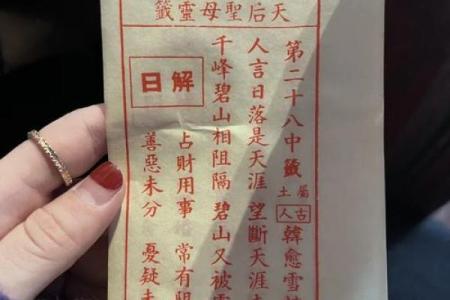 天后聖母靈籤
第二十八中籤 屬土 古人 韓愈雪
人言日落是天涯 望斷天涯
千峰碧山相阻隔 碧山又被
解曰
占財用事 常有阻
善惡未分 憂疑